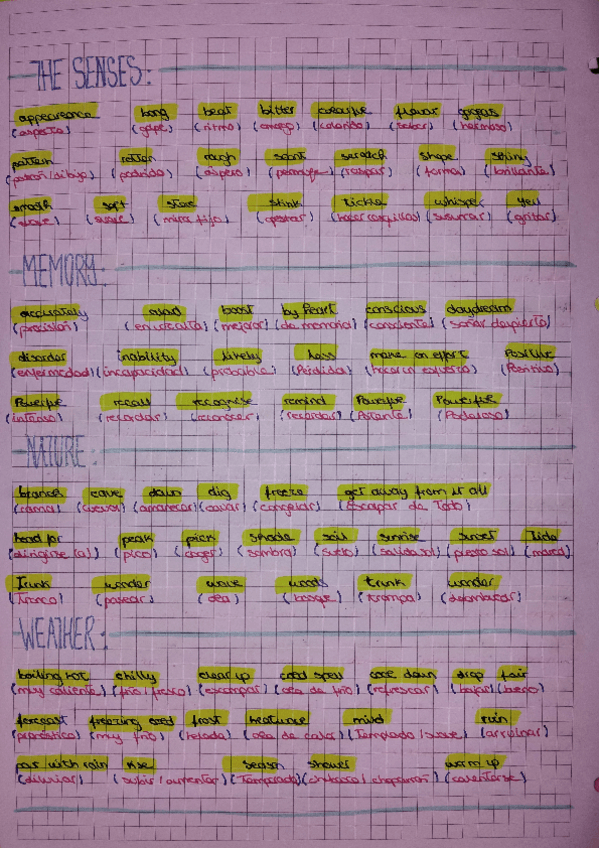 THE SENSES:
appearance bang beat bitter flavour
(aspecto) (golpe) (ritmo) (amargo) (colorido) (sabor) (hermoso)
pattern rotten rough scent scratch shape shiny
(patrón/dibujo) (podrido) (áspero) (perfume) (raspar) (forma) (brillante)
smooth soft stare stink tickle whisper yell
(suave) (suave) (mirar fijo) (apestar) (hacer cosquillas) (susurrar) (gritar)
MEMORY:
accurately boost by heart conscious daydream
(precisión) (mejorar) (de memoria) (consciente) (soñar despierto)
disorder inability likely loss make an effort positive
(enfermedad) (incapacidad) (probable) (Pérdida) (hacer un esfuerzo) (Positivo)
recall recognise remind Powerful
(intenso) (recordar) (reconocer) (recordar) (Potente) (Poderoso)
NATURE:
branch cave dawn dig freeze get away from it all
(rama) (cueva) (amanecer) (cavar) (congelar) (Escapar de Todo)
head for peak pick shade soil sunrise sunset Tide
(dirigirse (a)) (pico) (coger) (sombra) (suelo) (salida sol) (puesta sol) (marea)
Trunk wander wave woods trunk wander
(Tronco) (pasear) (ola) (bosque) (trompa) (deambular)
WEATHER:
boiling hot chilly clear up cold spell cool down drop fair
(muy caliente) (frío/fresco) (escampar) (ola de frío) (refrescar) (bajar) (bueno)
forecast freezing cold frost heatwave mild ruin
(pronóstico) (muy frío) (helada) (ola de calor) (Templado/suave) (arruinar)
pour with rain rise season shower warm up
(diluviar) (subir/aumentar) (Temporada) (chubasco/chaparrón) (calentarse)